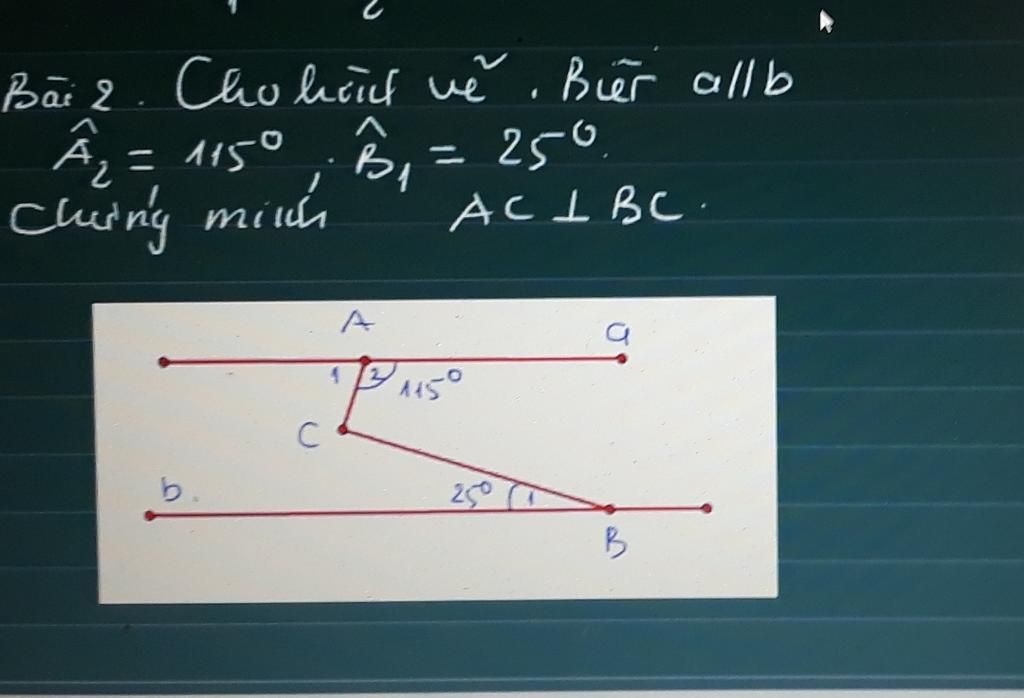 Bài 2. Cho hình vẽ. Biết a//b
Â₂ = 115°, B̂₁ = 25°.
Chứng minh AC ⊥ BC.
A
a
1 2 115°
C
b.
25° 1
B